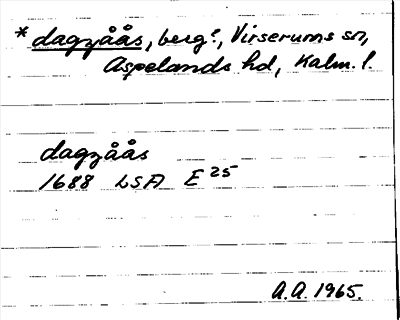 *dagzåås, berg?, Virserums sn,
Aspelands hd, Kalm. l.
dagzåås
1688 LSA E 25
A.A. 1965.